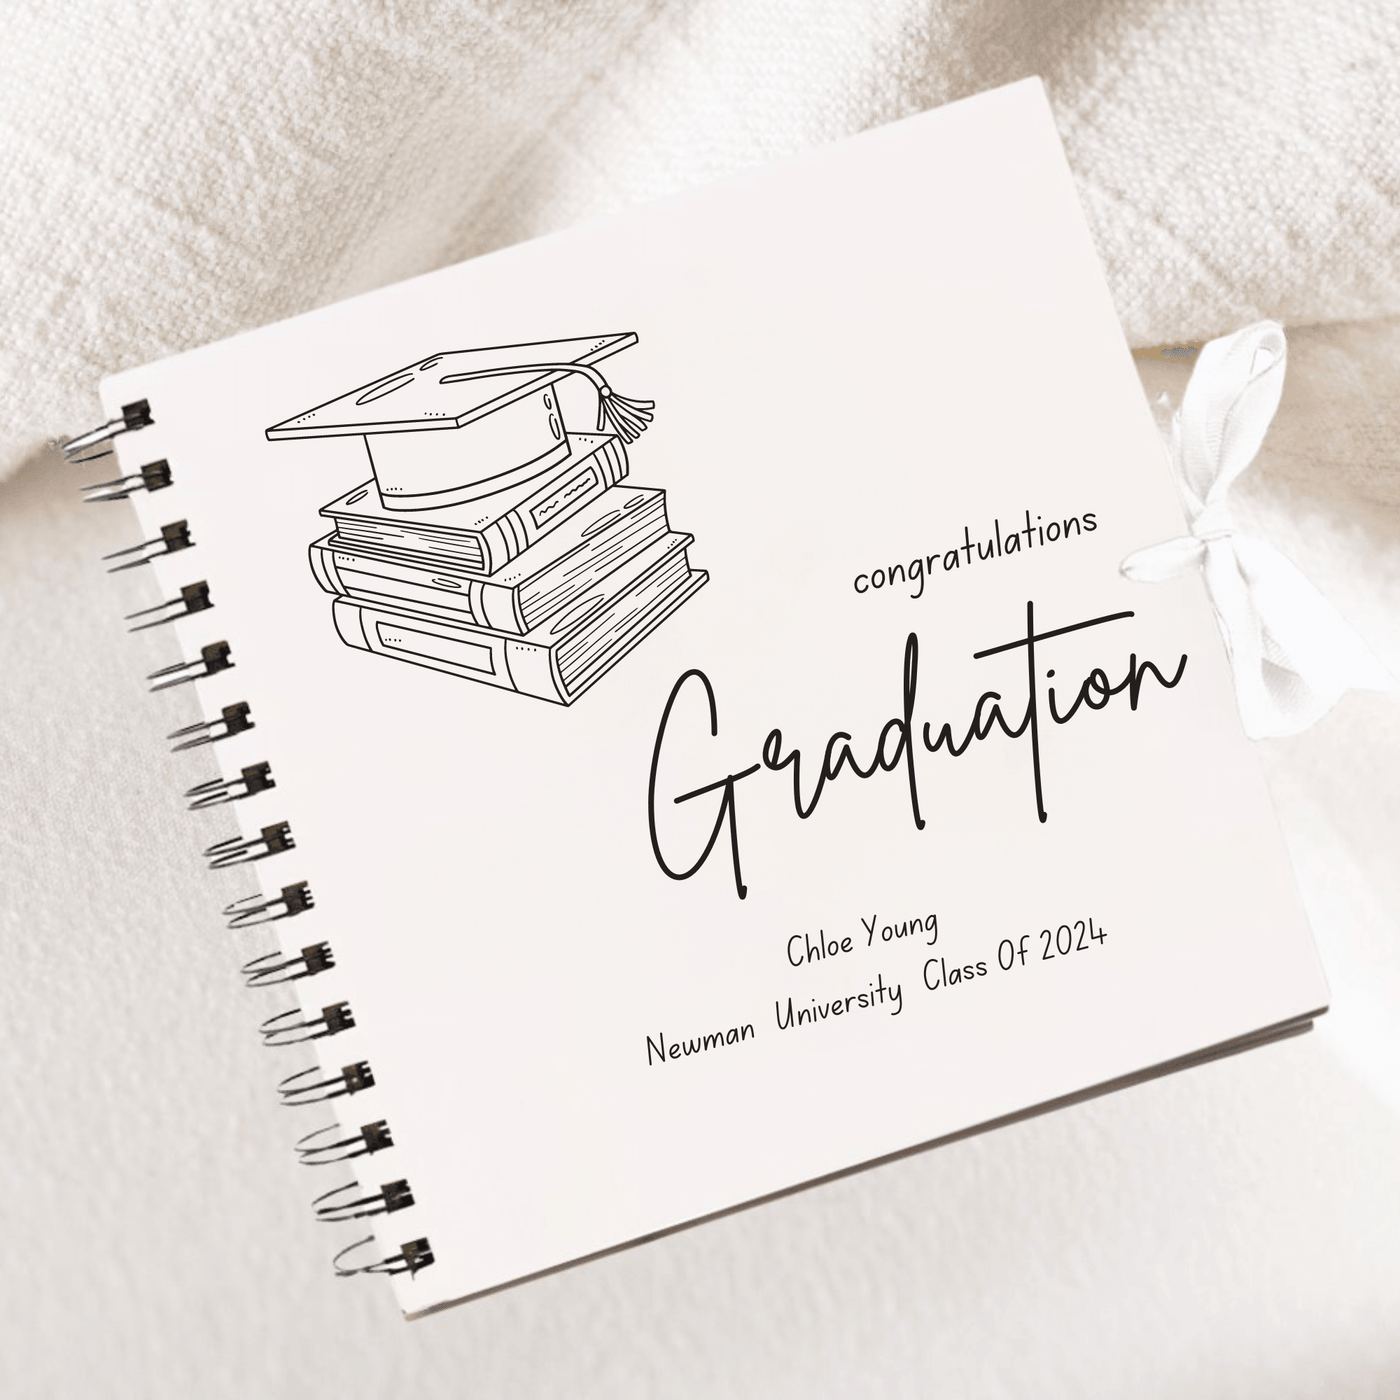 congratulations
Graduation
Chloe Young
Newman University Class Of 2024